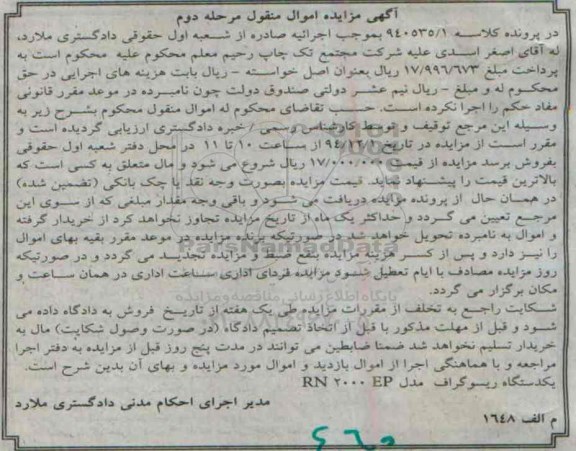 آگهی مزایده اموال منقول مرحله دوم
در پرونده کلاسه ۹۴۰۵۳۵/۱ بموجب اجرائیه صادره از شعبه اول حقوقی دادگستری ملارد،
له آقای اصغر اسدی علیه شرکت مجتمع تک چاپ رحیم معلم محکوم علیه محکوم است به
پرداخت مبلغ ۱۷/۹۹۶/۶۷۳ ریال بعنوان اصل خواسته - ریال بابت هزینه های اجرایی در حق
محکوم له و مبلغ - ریال نیم عشر دولتی صندوق دولت چون نامبرده در موعد مقرر قانونی
مفاد حکم را اجرا نکرده است. حسب تقاضای محکوم له اموال منقول محکوم بشرح زیر به
وسیله این مرجع توقیف و توسط کارشناس رسمی / خبره دادگستری ارزیابی گردیده است و
مقرر است از مزایده در تاریخ از ساعت ۱۰ تا ۱۱ در محل دفتر شعبه اول حقوقی
بفروش برسد مزایده از قیمت ۱۷/۰۰۰/۰۰۰ ریال شروع می شود و مال متعلق به کسی است که
بالاترین قیمت را پیشنهاد نماید. قیمت مزایده بصورت وجه نقد یا چک بانکی (تضمین شده)
در همان حال از پرونده مزایده دریافت می شود و باقی وجه مقدار مبلغی که از سوی این
مرجع تعیین می گردد و حداکثر یک ماه از تاریخ مزایده تجاوز نخواهد کرد از خریدار گرفته
و اموال به نامبرده تحویل خواهد شد در صورتیکه برنده مزایده در موعد مقرر بقیه بهای اموال
را نیز دارد و پس از کسر هزینه مزایده بنفع ضبط و مزایده تجدید می گردد و در صورتیکه
روز مزایده مصادف با ایام تعطیل شود مزایده فردای اداری ساعت اداری در همان ساعت و
مکان برگزار می گردد.
شکایت راجع به تخلف از مقررات مزایده طی یک هفته از تاریخ فروش به دادگاه داده می
شود و قبل از مهلت مذکور با قبل از اتخاذ تصمیم دادگاه (در صورت وصول شکایت) مال به
خریدار تسلیم نخواهد شد ضمنا ضابطین می توانند در مدت پنج روز قبل از مزایده به دفتر اجرا
مراجعه و با هماهنگی اجرا از اموال بازدید و اموال مورد مزایده و بهای آن بدین شرح است.
یکدستگاه ریسوگراف مدل RN ۲۰۰۰ EP
مدیر اجرای احکام مدنی دادگستری ملارد
م الف ۱۶۴۸